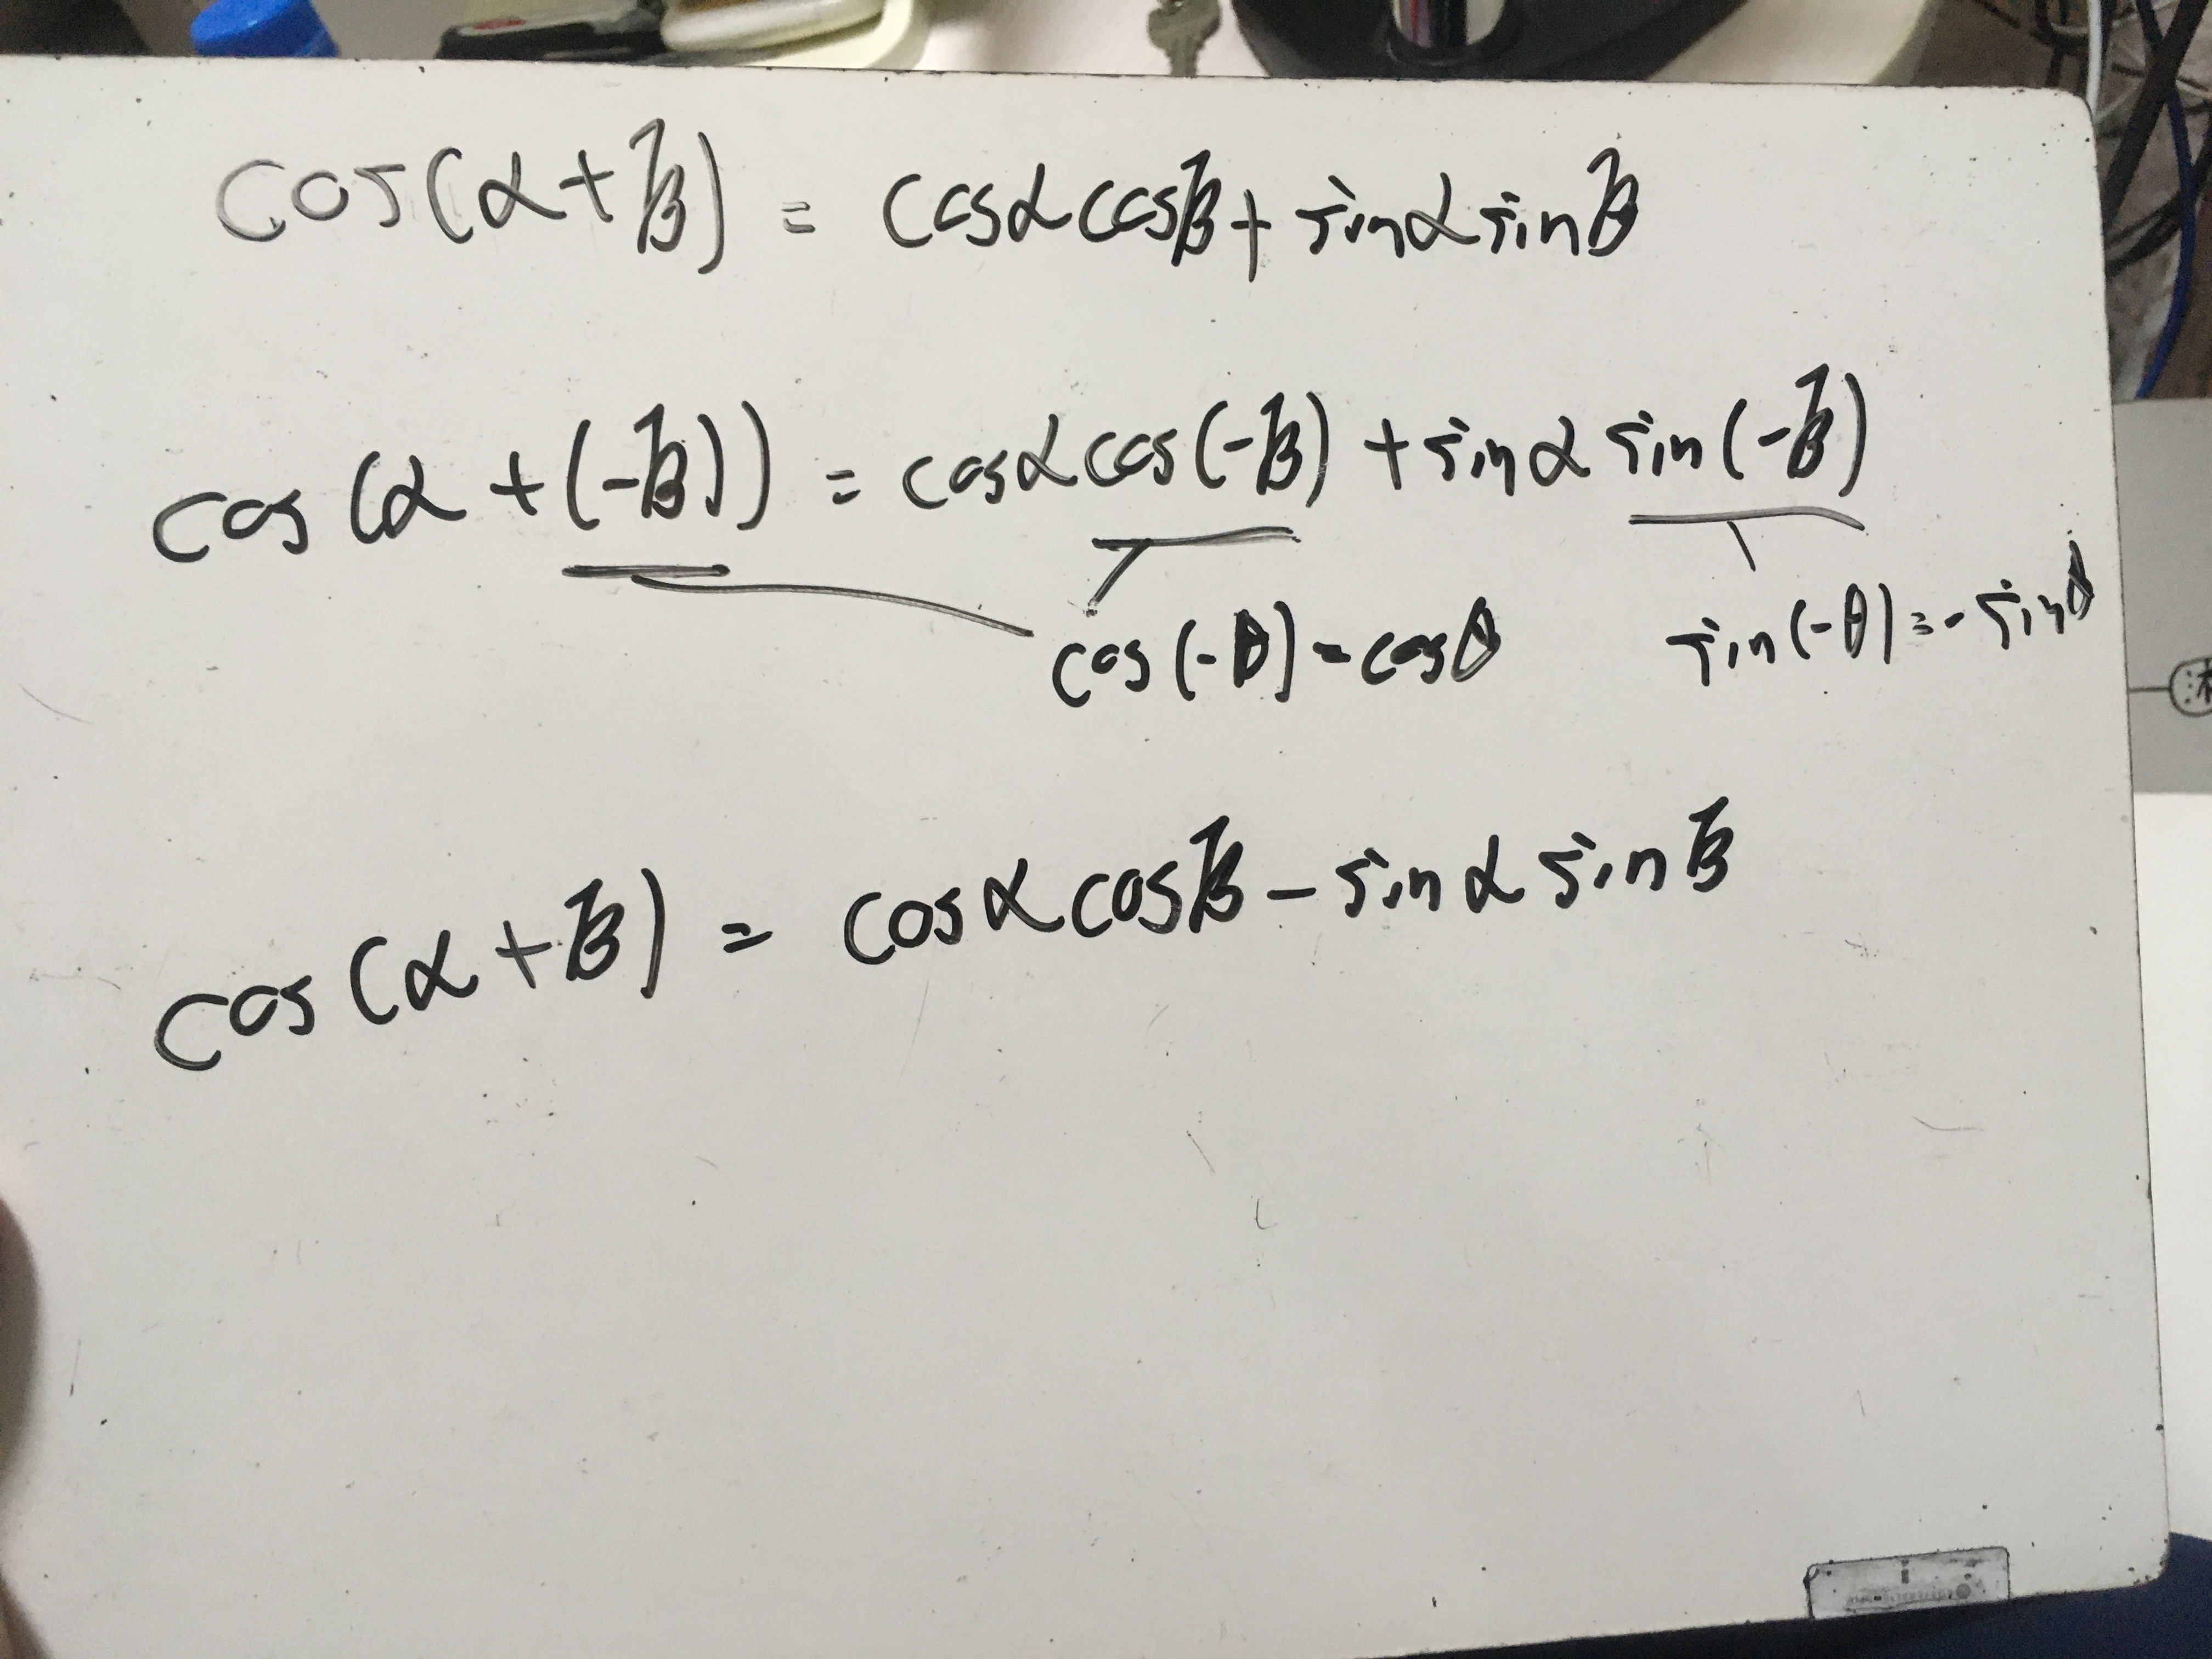 cos(α+β) = cosαcosβ + sinαsinβ
cos(α+(-β)) = cosαcos(-β) + sinαsin(-β)
cos(-θ)=cosθ
sin(-θ)=-sinθ
cos(α+β) = cosαcosβ - sinαsinβ